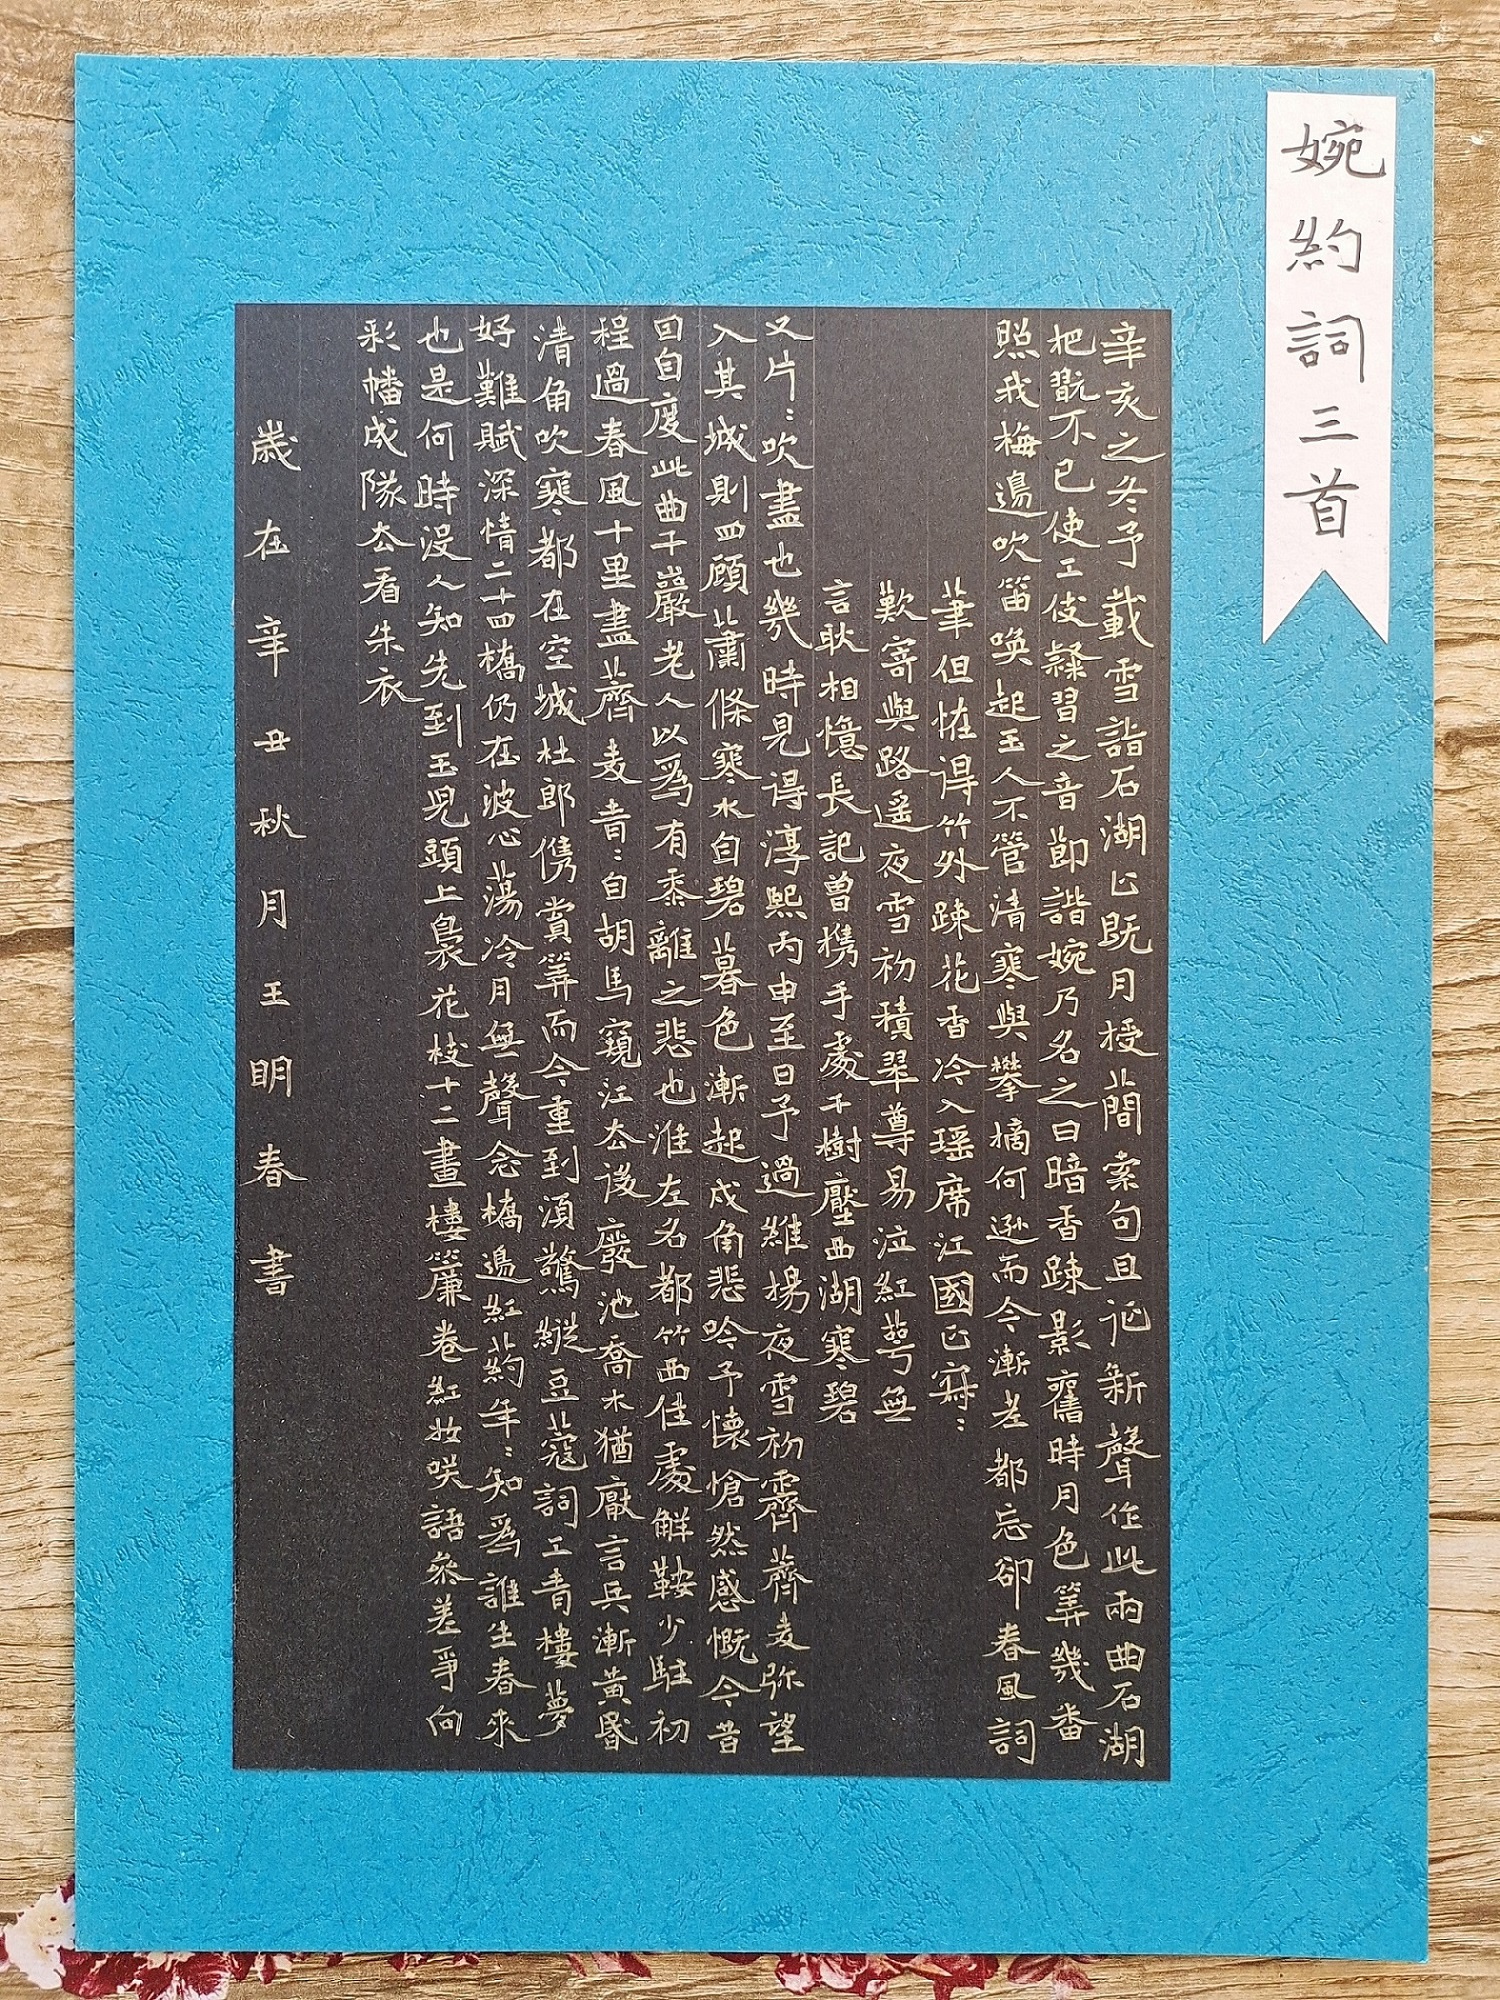 婉約詞三首
辛亥之冬予載雪詣石湖止既月授簡索句且徵新聲作此兩曲石湖
把翫不已使工伎隸習之音節諧婉乃名之曰暗香疎影舊時月色筭幾番
照我梅邊吹笛喚起玉人不管清寒與攀摘何遜而今漸老都忘卻春風詞
筆但恠得竹外疎花香冷入瑶席江國正寂:
歎寄與路遥夜雪初積翠尊易泣紅萼無
言耿相憶長記曾攜手處千樹壓西湖寒碧
又片:吹盡也幾時見得淳熙丙申至日予過維揚夜雪初霽薺麦弥望
入其城則四顧蕭條寒水自碧暮色漸起戍角悲吟予懷愴然感慨今昔
回自度此曲千巖老人以為有黍離之悲也淮左名都竹西佳處解鞍少駐初
程過春風十里盡薺麦青:自胡馬窺江去後廢池喬木猶厭言兵漸黄昏
清角吹寒都在空城杜郎儁賞筭而今重到須驚縱豆蔻詞工青樓夢
好難賦深情二十四橋仍在波心蕩冷月無聲念橋邊紅葯年:知為誰生春來
也是何時沒人知先到玉児頭上裊花枝十二畫樓簾卷紅妝咲語參差爭向
彩幡成隊去看朱衣
歲在辛丑秋月王明春書